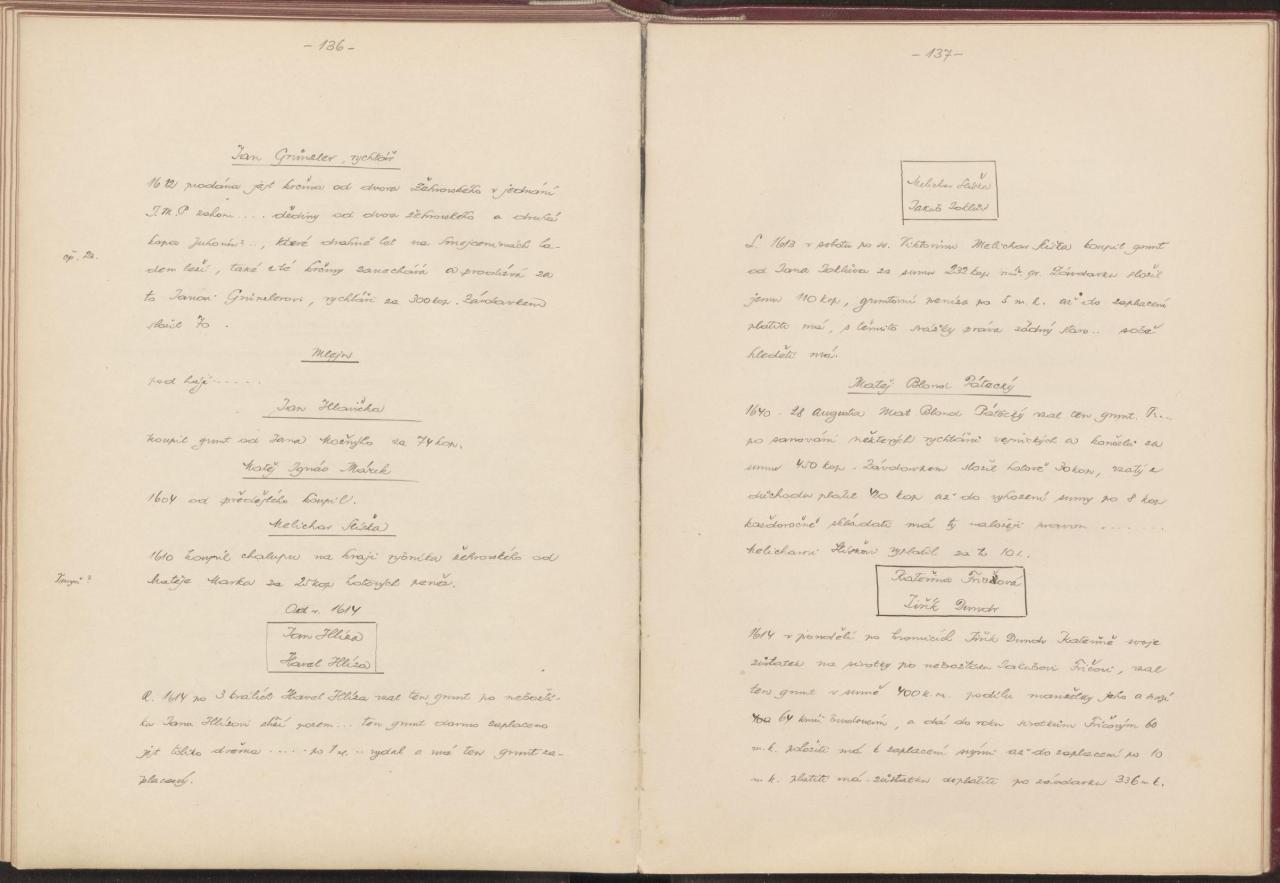 - 136 -
Jan Grünzler, rychtář
1612 prodána jest krčma od dvora Žehrovského v jednání
J.M.P. .... dědiny od dvora žehrovského a druhá
kopa .., které drahně let na la-
čp. 22.
dem leží, také z té krčmy zanechává a prodává za
to Janovi Grünzlerovi, rychtáři za 300 kop. Závdavkem
složil 70.
Mlejn
pod háji .....
Jan Hlavička
koupil grunt od Jana za 74 kop.
Matěj Ignác Márek
1604 od předešlého koupil.
Melichar Slíška
1610 koupil chalupu na kraji rybníka žehrovského od
Matěje Marka za 25 kop hotových peněz.
Od r. 1614
Jan Hlíza
Havel Hlíza
R. 1614 po 3 králích Havel Hlíza vzal ten grunt po neboští-
ku Janu Hlízovi ... ten grunt darmo zaplaceno
jest toliko dvěma ..... po 1 .. vydal a má ten grunt za-
placený.
- 137 -
Melichar Slíška
Jakub
L. 1613 v sobotu po sv. Viktorinu Melichar Slíška koupil grunt
od Jana za sumu 232 kop míš. gr. Závdavku složil
jemu 110 kop, gruntovní peníze po 5 m. k. až do zaplacení
platiti má, s těmito srážky práva žádný .. sobě
hleděti má.
Matěj Blond Pátecký
1640 - 28 Augusta Mat Blond Pátecký vzal ten grunt. ...
po sanování některých rychtářů a konšelů za
sumu 450 kop. Závdavkem složil hotově 30 kop, vzatý z
důchodu platil 420 kop až do vyhození sumy po 8 kop
každoročně skládati má .......
Melicharovi Slíškovi vyplatil za to 10 .
Kateřina Fričová
Jiřík Dundr
1614 v pondělí po hromicích Jiřík Dundr Kateřině svoje
zůstatek na sirotky po nebožtíku Jakubovi Fričovi, vzal
ten grunt v sumě 400 k. m. podílu manželky jeho a
400 64 , a dá do roku sirotkům Fričovým 60
m. k. položiti má k zaplacení až do zaplacení po 10
m. k. platiti má zůstatek doplatiti po závdavku 336 m k.